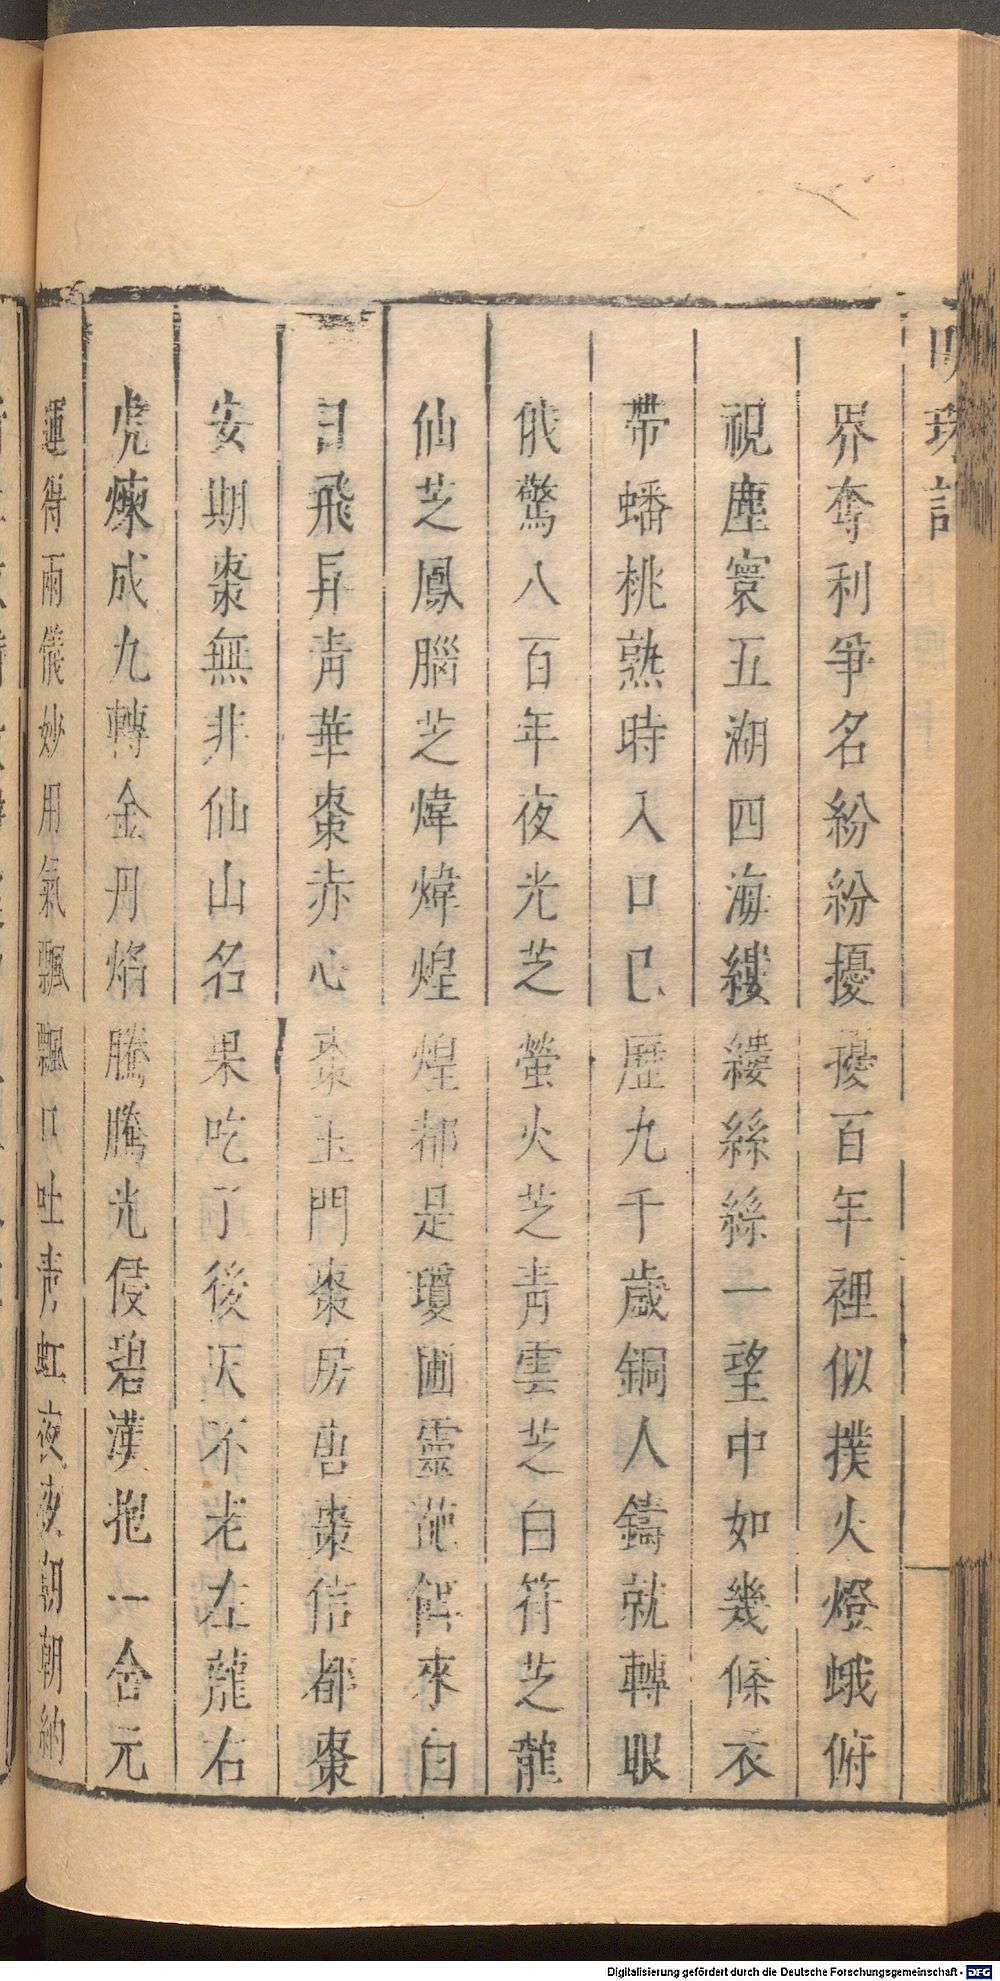 明珠記
界奪利爭名紛紛擾擾百年裡似撲火燈蛾俯
視塵寰五湖四海縷縷絲絲一望中如幾條衣
帶蟠桃熟時入口已歷九千歲銅人鑄就轉眼
俄驚八百年夜光芝螢火芝青雲芝白符芝龍
仙芝鳳腦芝煒煒煌煌都是瓊圃靈葩餌來白
日飛昇青華棗赤心棗玉門棗房棗信都棗
安期棗無非仙山名果吃了後天不老左龍右
虎煉成九轉金丹焰騰騰光侵碧漢抱一含元
運得兩儀妙用氣飄飄口吐青虹夜夜朝朝納
Digitalisierung gefördert durch die Deutsche Forschungsgemeinschaft - DFG